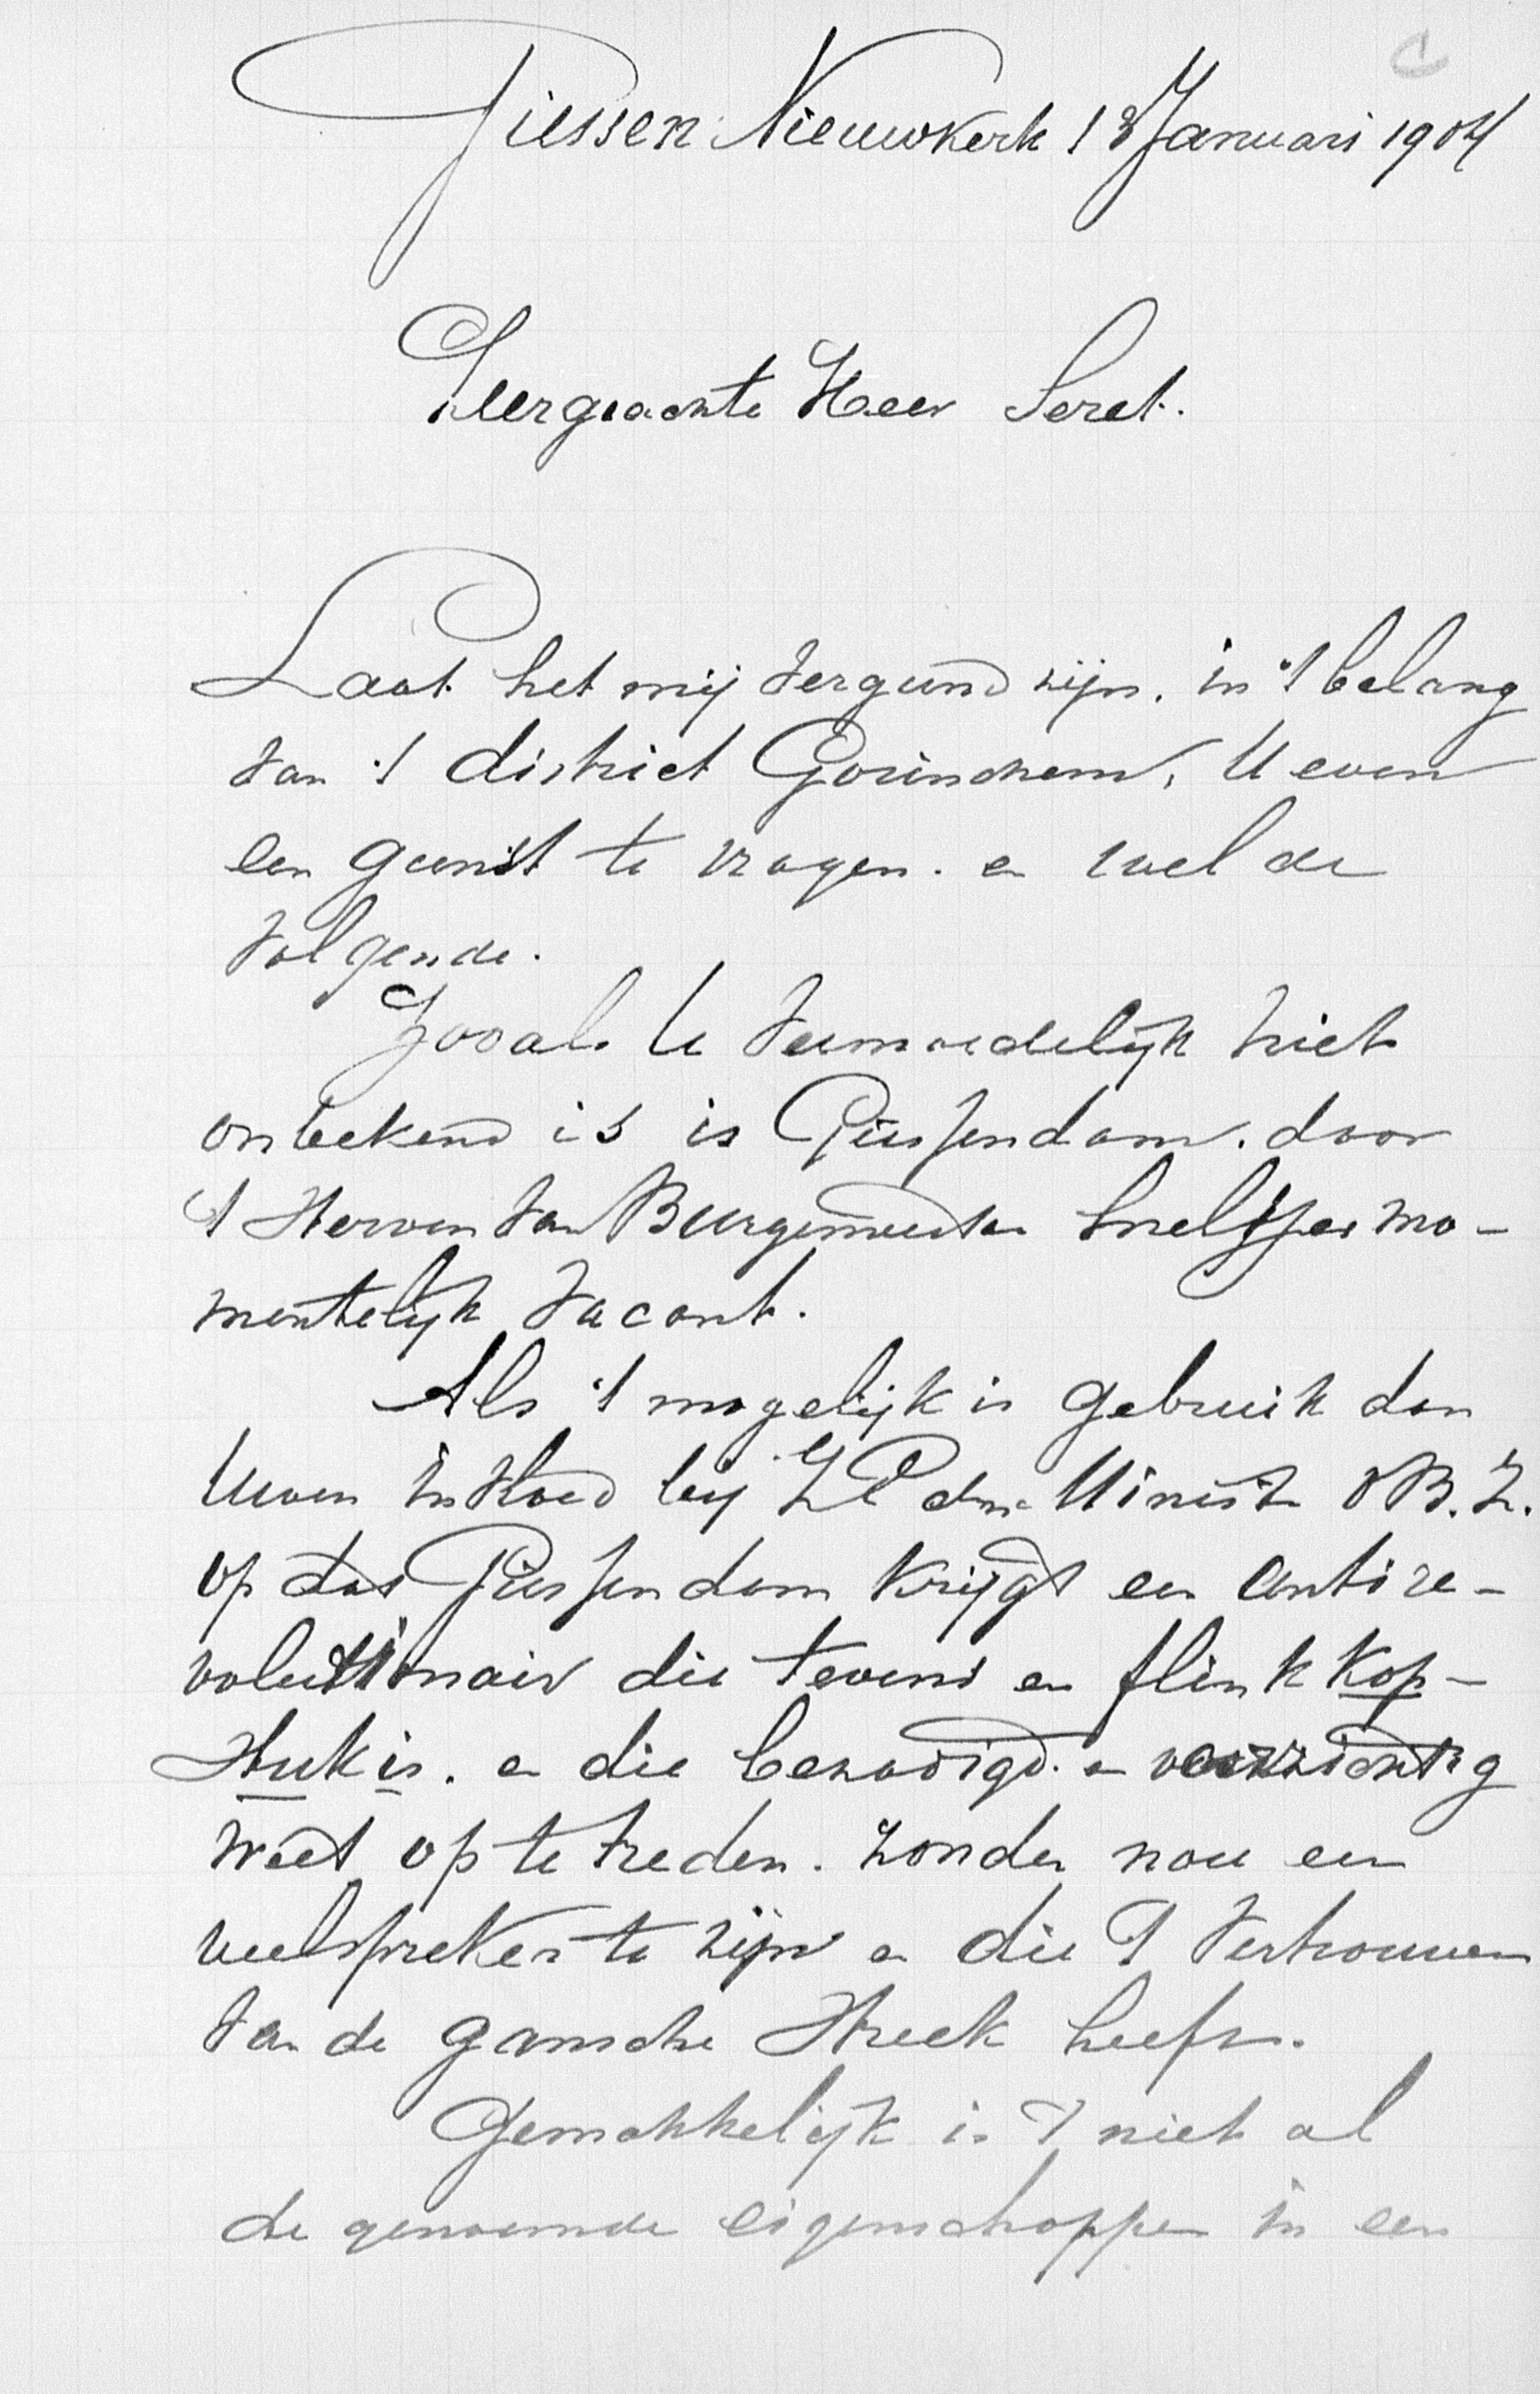 Giessen Nieuwkerk 18 Januari 1904
Zeergeachte Heer Seret.
Laat het mij vergund zijn. in 't belang
van 't district Gorinchem, U even
een gunst te vragen. en wel de
volgende.
Zooals U vermoedelijk niet
onbekend is is Giessendam. door
't sterven van Burgemeester Snelsper mo-
mentelijk vacant.
Als 't mogelijk is gebruik dan
Uwen invloed bij ZE den Minist v B. Z.
op dat Giessendam krijgt een antire-
volutionair die tevens en flink kop-
stuk is. en die bezadigd. en voorzichtig
weet op te treden. zonder nou een
veelspreker te zijn en die 't vertrouwen
van de gansche streek heeft.
Gemakkelijk is 't niet al
de genoemde eigenschappen in een